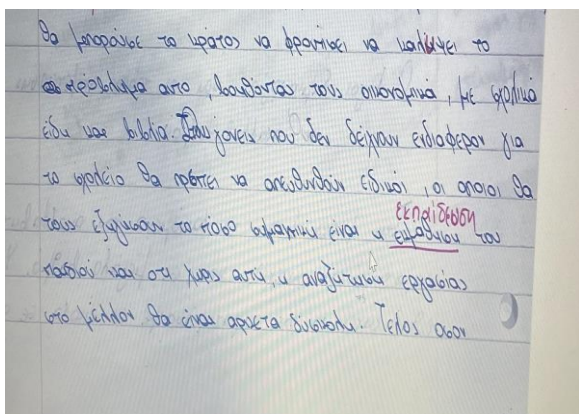 θα μπορούσε το κράτος να φροντίσει να καλύψει το
πρόβλημα αυτο, βοηθόντας τους οικονομικά, με σχολικά
είδη και βιβλία. γονείς που δεν δείχνουν ενδιαφέρον για
το σχολείο θα πρέπει να απευθυνθούν ειδικοί, οι οποιοι θα
εκπαίδευση
τους εξηγήσουν το πόσο σημαντική είναι η εκμάθηση του
παιδιού και οτι χωρις αυτη, η αναζήτηση εργασίας
στο μέλλον θα είναι αρκετα δύσκολη. Τελος οσον